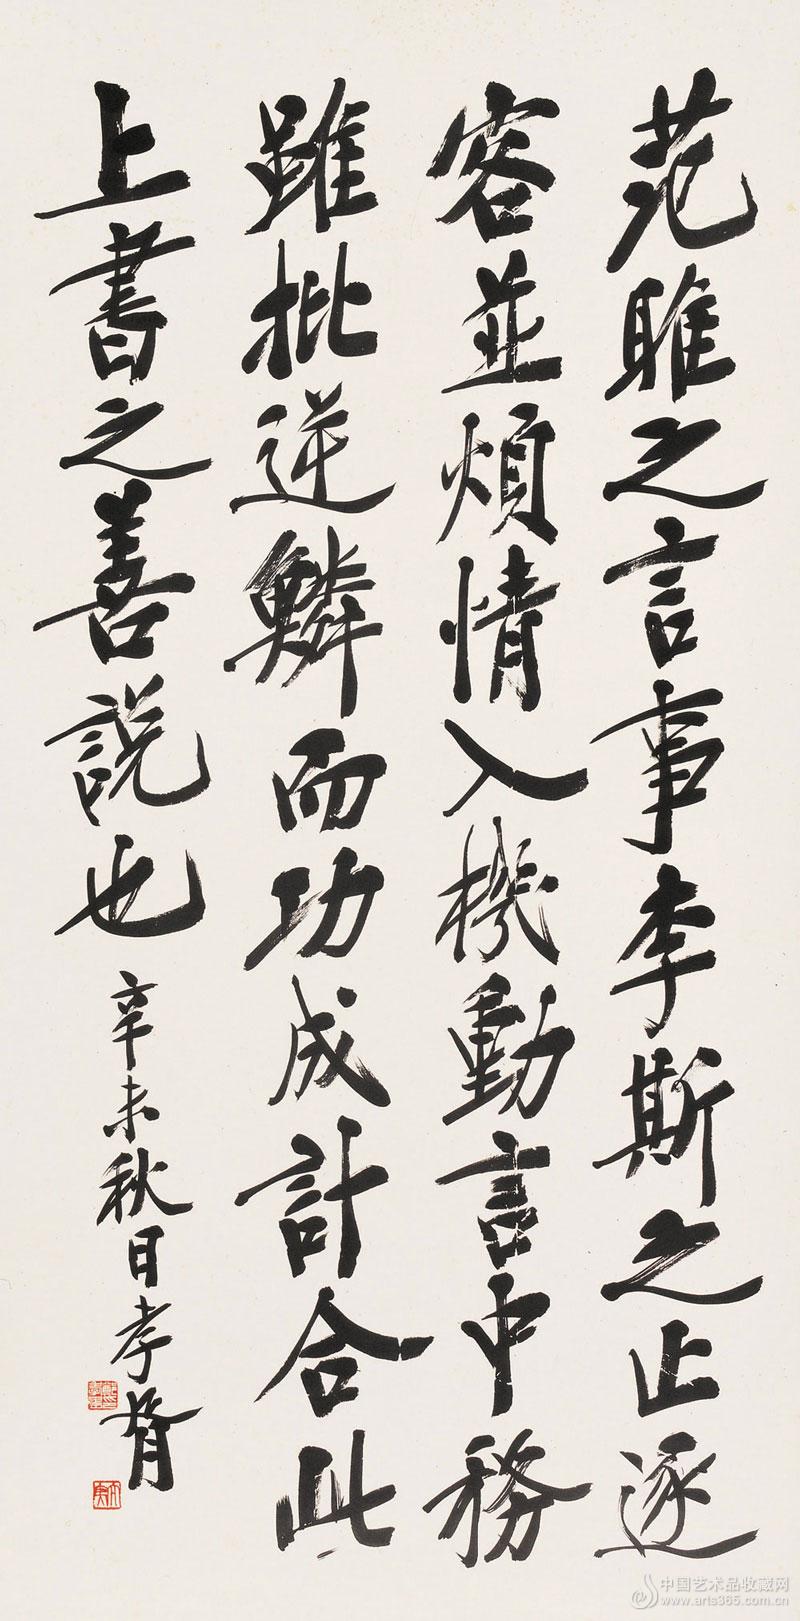 范雎之言事李斯之止逐
客並煩情入機動言中務
雖批逆鱗而功成計合此
上書之善說也
辛未秋日孝胥
中国艺术品收藏网
www.arts365.com.cn